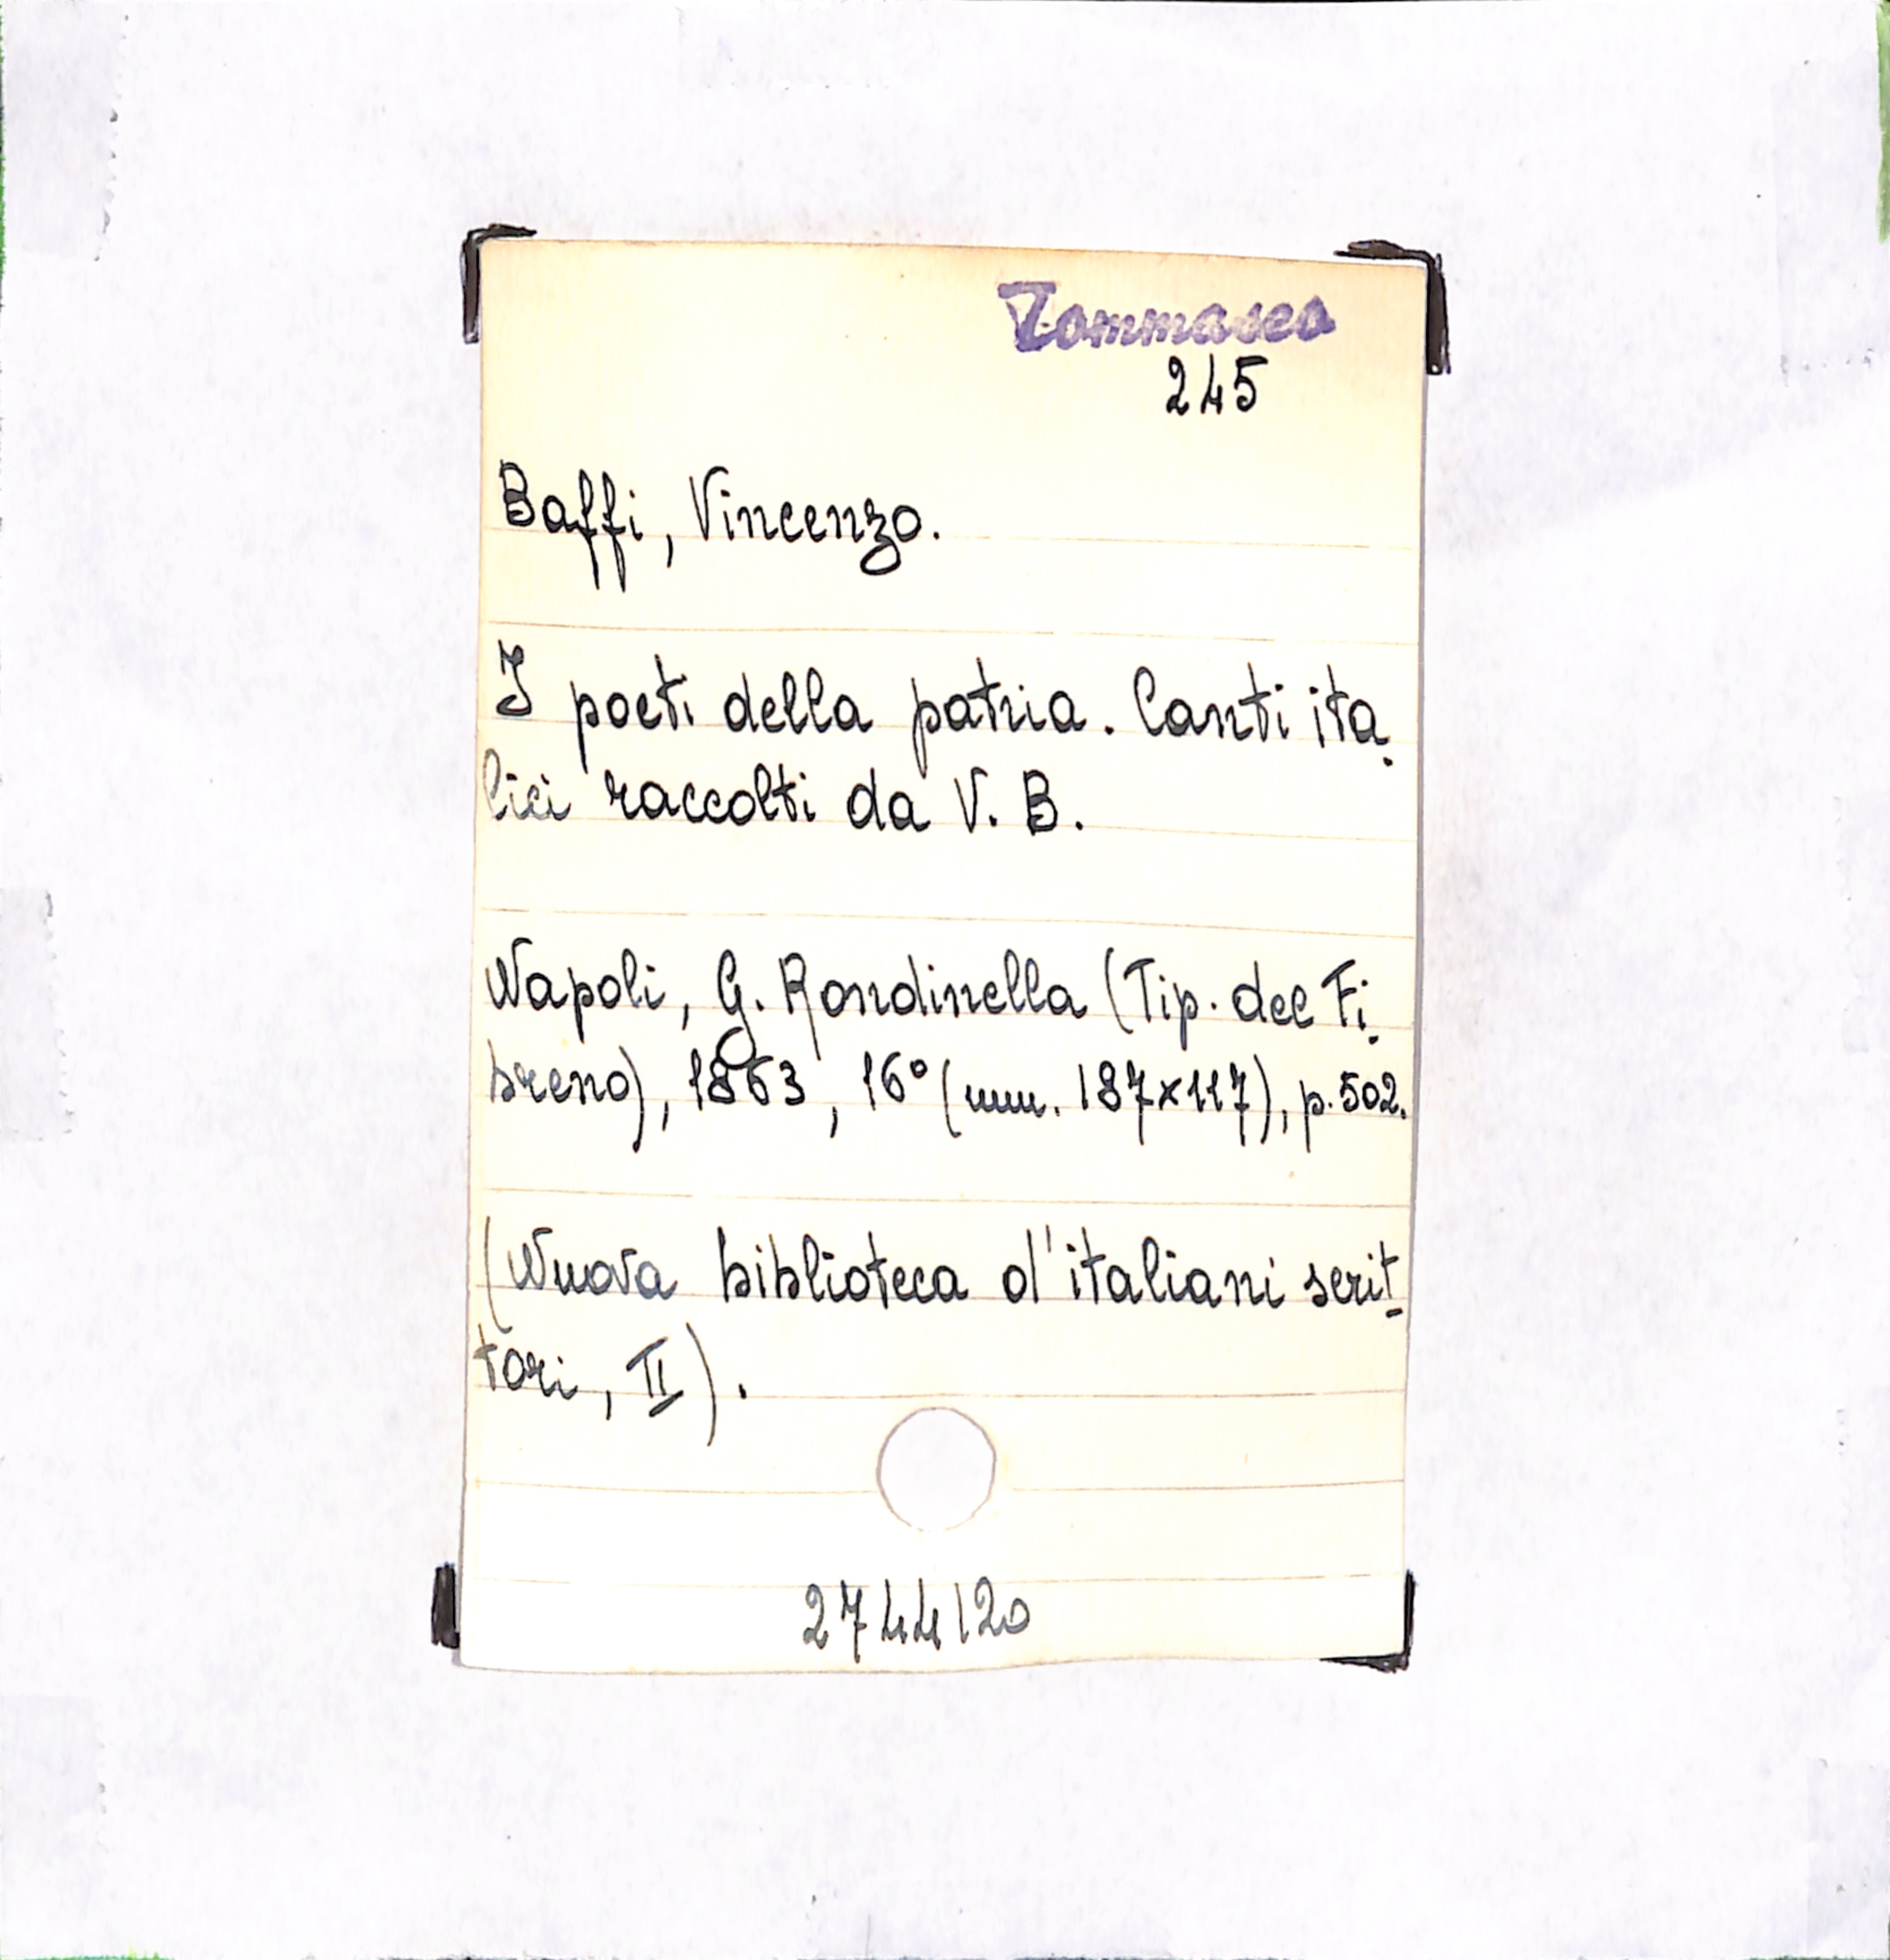 Tommaseo
245
Baffi, Vincenzo.
I poeti della patria. Canti ita-
lici raccolti da V. B.
Napoli, G. Rondinella (Tip. del Fi-
breno), 1863, 16° (mm. 187×117), p. 502.
(Nuova biblioteca d'italiani scrit-
tori, II).
2744120